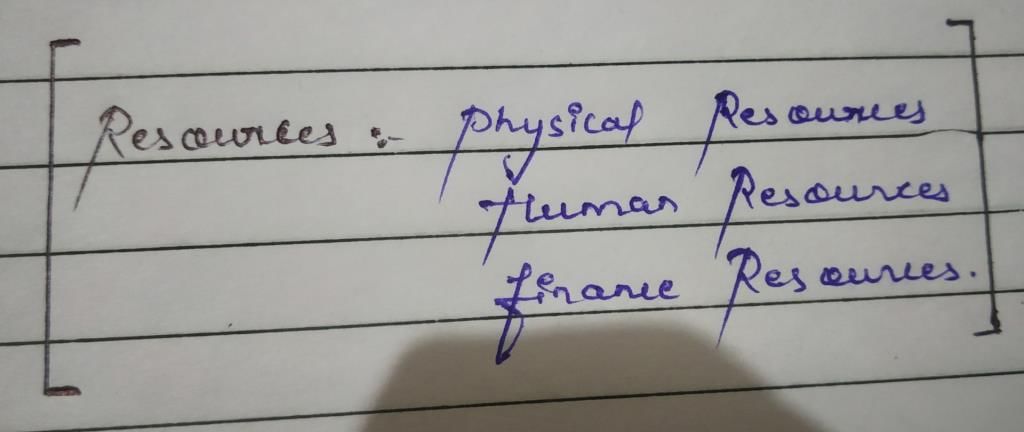 Resources :- Physical Resources
Human Resources
finance Resources.